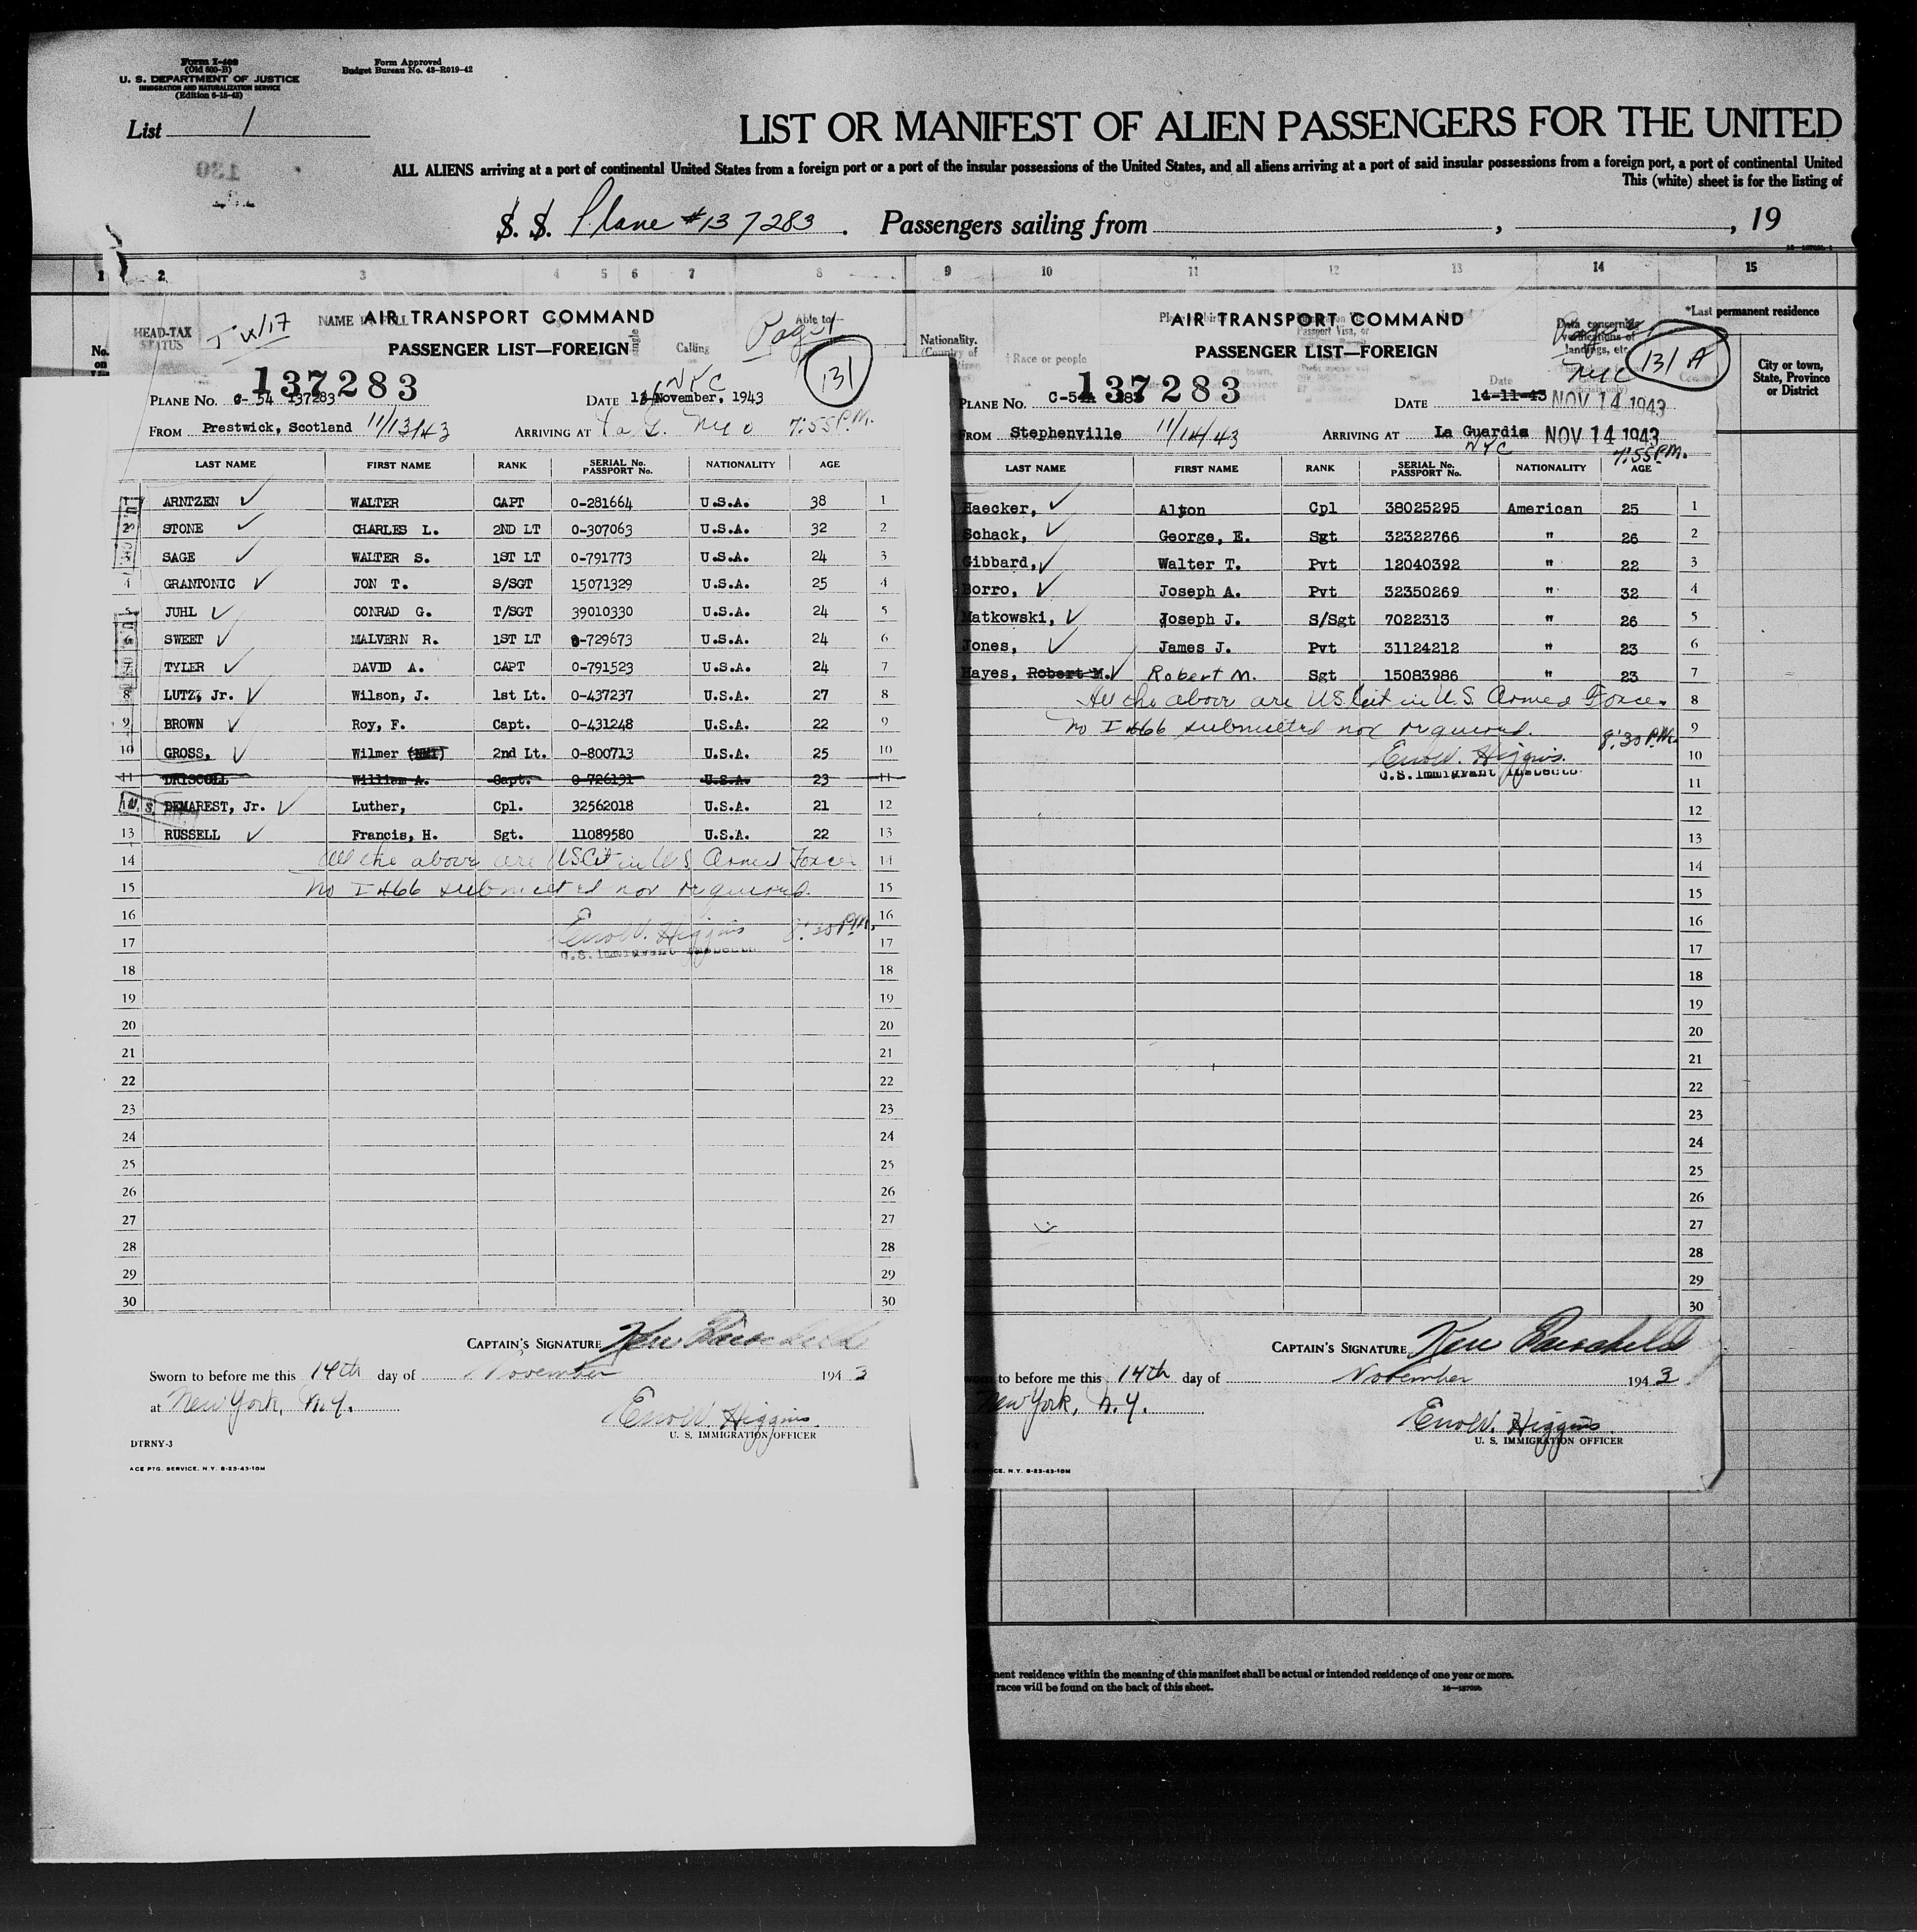 Form I-408
(Old 500-B)
U. S. DEPARTMENT OF JUSTICE
IMMIGRATION AND NATURALIZATION SERVICE
(Edition 6-15-43)
Form Approved
Budget Bureau No. 43-R019-42
List 1
LIST OR MANIFEST OF ALIEN PASSENGERS FOR THE UNITED
130
ALL ALIENS arriving at a port of continental United States from a foreign port or a port of the insular possessions of the United States, and all aliens arriving at a port of said insular possessions from a foreign port, a port of continental United
This (white) sheet is for the listing of
S. S. Plane #137283. Passengers sailing from , , 19
1 2 3 4 5 6 7 8 9 10 11 12 13 14 15
HEAD-TAX
STATUS
No.
on
Able to—
Calling
Nationality.
(Country of
† Race or people
*Last permanent residence
City or town,
State, Province
or District
AIR TRANSPORT COMMAND
PASSENGER LIST—FOREIGN
Page 1
131
137283
PLANE No. C- 54 137283 DATE November, 1943
NYC
FROM Prestwick, Scotland 11/13/43 ARRIVING AT 7:55 P.M.
LAST NAME FIRST NAME RANK SERIAL No. PASSPORT No. NATIONALITY AGE
1 ARNTZEN WALTER CAPT 0-281664 U.S.A. 38 1
2 STONE CHARLES L. 2ND LT 0-307063 U.S.A. 32 2
3 SAGE WALTER S. 1ST LT 0-791773 U.S.A. 24 3
4 GRANTONIC JON T. S/SGT 15071329 U.S.A. 25 4
5 JUHL CONRAD G. T/SGT 39010330 U.S.A. 24 5
6 SWEET MALVERN R. 1ST LT 0-729673 U.S.A. 24 6
7 TYLER DAVID A. CAPT 0-791523 U.S.A. 24 7
8 LUTZ, Jr. Wilson, J. 1st Lt. 0-437237 U.S.A. 27 8
9 BROWN Roy, F. Capt. 0-431248 U.S.A. 22 9
10 GROSS, Wilmer (NMI) 2nd Lt. 0-800713 U.S.A. 25 10
11 DRISCOLL William A. Capt. 0-726131 U.S.A. 23 11
12 DEMAREST, Jr. Luther, Cpl. 32562018 U.S.A. 21 12
13 RUSSELL Francis, H. Sgt. 11089580 U.S.A. 22 13
14 All the above are US Cit in US Armed Forces 14
15 No I 466 submitted nor required. 15
16 Eno W. Higgins 8:30 P.M. 16
17 U.S. Immigrant Inspector 17
18 18
19 19
20 20
21 21
22 22
23 23
24 24
25 25
26 26
27 27
28 28
29 29
30 30
CAPTAIN'S SIGNATURE
Sworn to before me this 14th day of November 1943
at New York, N.Y. Eno W. Higgins
U. S. IMMIGRATION OFFICER
DTRNY-3
ACE PTG. SERVICE, N.Y. 8-23-43-10M
AIR TRANSPORT COMMAND
PASSENGER LIST—FOREIGN
Page 2
NYC
131 A
137283
PLANE No. C-54 DATE 14-11-43 NOV 14 1943
FROM Stephenville 11/14/43 ARRIVING AT La Guardia NOV 14 1943
NYC 7:55 P.M.
LAST NAME FIRST NAME RANK SERIAL No. PASSPORT No. NATIONALITY AGE
Haecker, Alton Cpl 38025295 American 25 1
Schack, George, E. Sgt 32322766 " 26 2
Gibbard, Walter T. Pvt 12040392 " 22 3
Borro, Joseph A. Pvt 32350269 " 32 4
Matkowski, Joseph J. S/Sgt 7022313 " 26 5
Jones, James J. Pvt 31124212 " 23 6
Hayes, Robert M. Robert M. Sgt 15083986 " 23 7
All the above are US Cit in U.S. Armed Forces 8
No I 466 submitted nor required. 9
Eno W. Higgins. 8:30 P.M. 10
U.S. Immigrant Inspector 11
12
13
14
15
16
17
18
19
20
21
22
23
24
25
26
27
28
29
30
CAPTAIN'S SIGNATURE
to before me this 14th day of November 1943
New York, N.Y. Eno W. Higgins
U. S. IMMIGRATION OFFICER
CE, N.Y. 8-23-43-10M
residence within the meaning of this manifest shall be actual or intended residence of one year or more.
races will be found on the back of this sheet.